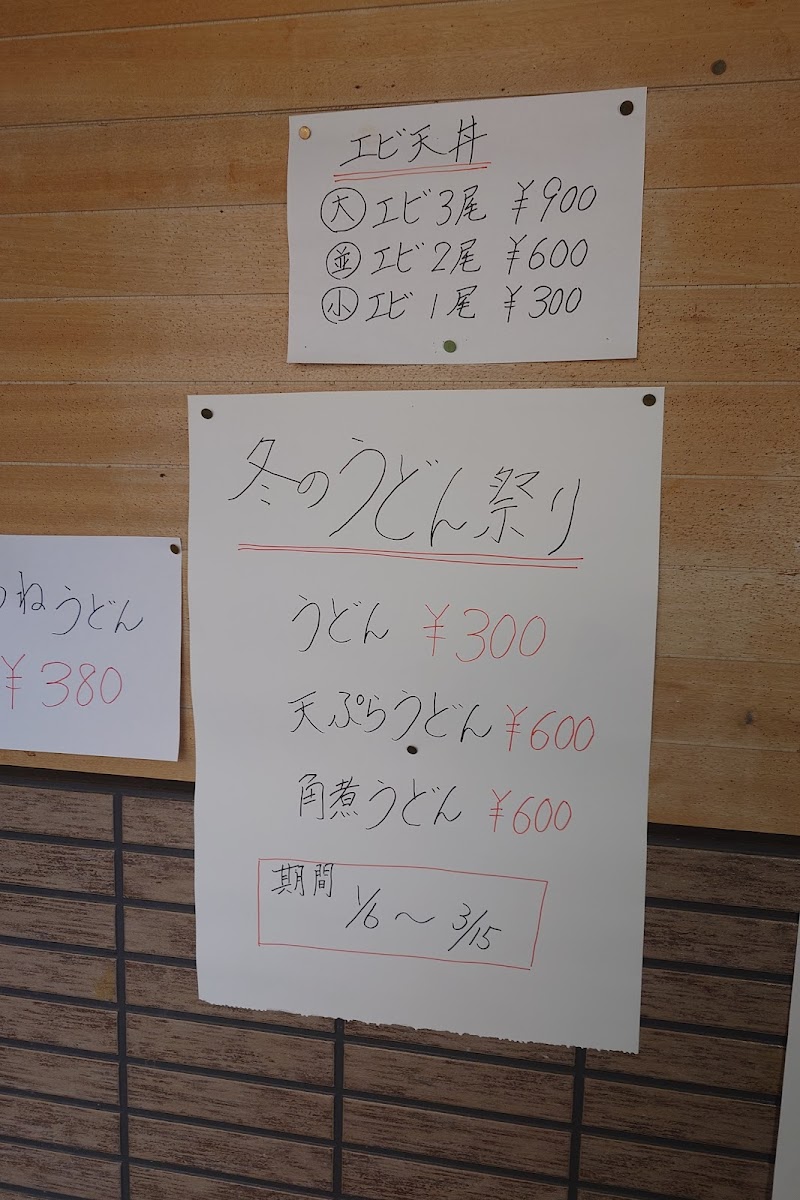 エビ天丼
大 エビ3尾 ¥900
並 エビ2尾 ¥600
小 エビ1尾 ¥300
冬のうどん祭り
うどん ¥300
天ぷらうどん ¥600
角煮うどん ¥600
期間
1/6〜3/15
つねうどん
¥380